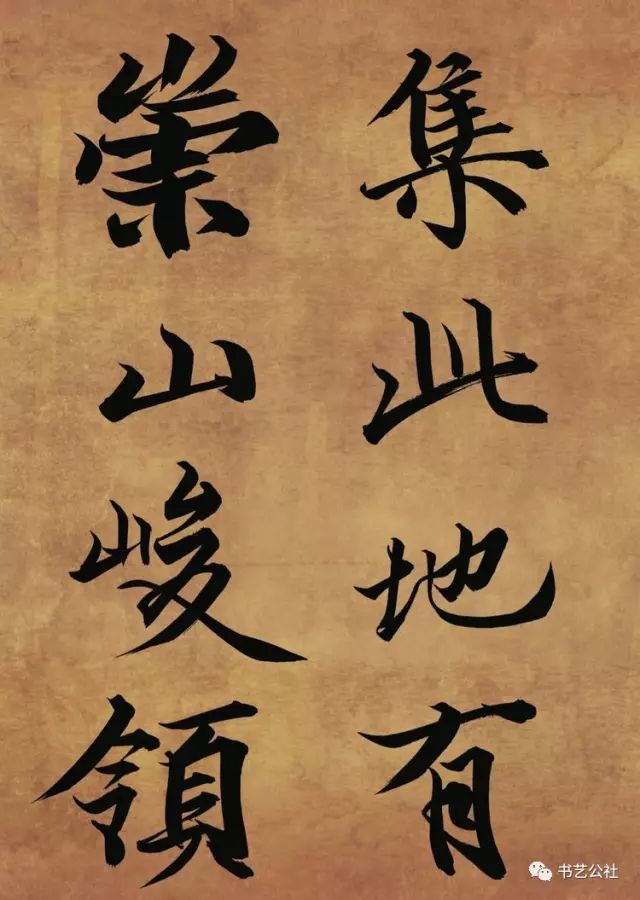 集此地有
崇山峻領
书艺公社